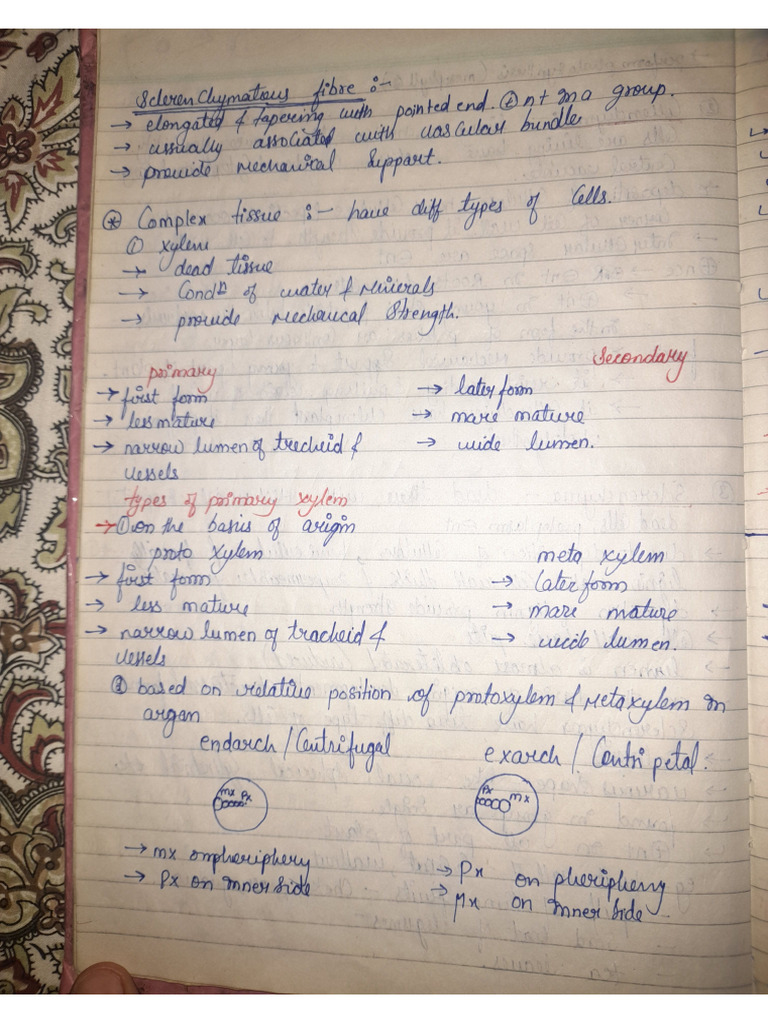 Sclerenchymatous fibre :-
→ elongated & tapering with pointed end. ② nt in a group.
→ usually associated with vascular bundle
→ provide mechanical support.
⊛ Complex tissue :- have diff types of cells.
① xylem
→ dead tissue
→ Condⁿ of water & minerals
→ provide mechanical strength.
primary secondary
→ first form → later form
→ less mature → more mature
→ narrow lumen of trecheid & → wide lumen.
vessels
types of primary xylem
→ ① on the basis of origin
proto xylem meta xylem
→ first form → later form
→ less mature → more mature
→ narrow lumen of tracheid & → wide lumen.
vessels
② based on relative position of protoxylem & metaxylem in
organ
endarch / Centrifugal exarch / Centripetal.
mx px px mx
→ mx on periphery → Px on pheriphery
→ Px on inner side → Mx on inner side